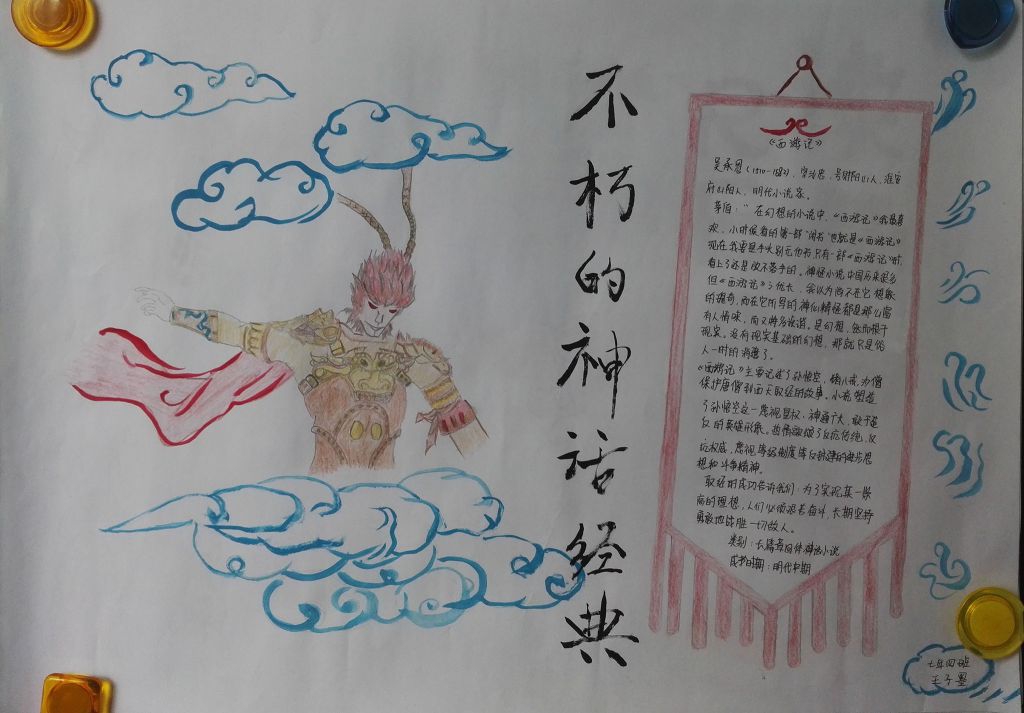 不朽的神话经典
《西游记》
吴承恩(1510-1582),字汝忠,号射阳山人,淮安
府山阳人,明代小说家。
茅盾:“在幻想的小说中,《西游记》我最喜
欢,小时候看的第一部“闲书”也就是《西游记》
现在我要是手头别无他书只有一部《西游记》时
看上了还是放不落手的。神怪小说中国历来很多
但《西游记》之优长,
的猎奇,而在它所写的神仙精怪都是那么富
有人情味,而又特多诙谐。是幻想,然而根于
现实。没有现实基础的幻想,那就只是给
人一时的消遣了。
《西游记》主要记述了孙悟空,猪八戒,沙僧
保护唐僧到西天取经的故事。小说塑造
了孙悟空这一蔑视皇权、神通广大、敢于造
反的英雄形象。
抗权威,蔑视等级制度等反封建的
想和斗争精神。
取经的成功告诉我们:为了实现某一崇
高的理想,人们必须艰苦奋斗,长期坚持
勇敢地战胜一切敌人。
类别:长篇章回体神话小说
成书日期:明代中期
七年四班
王子墨